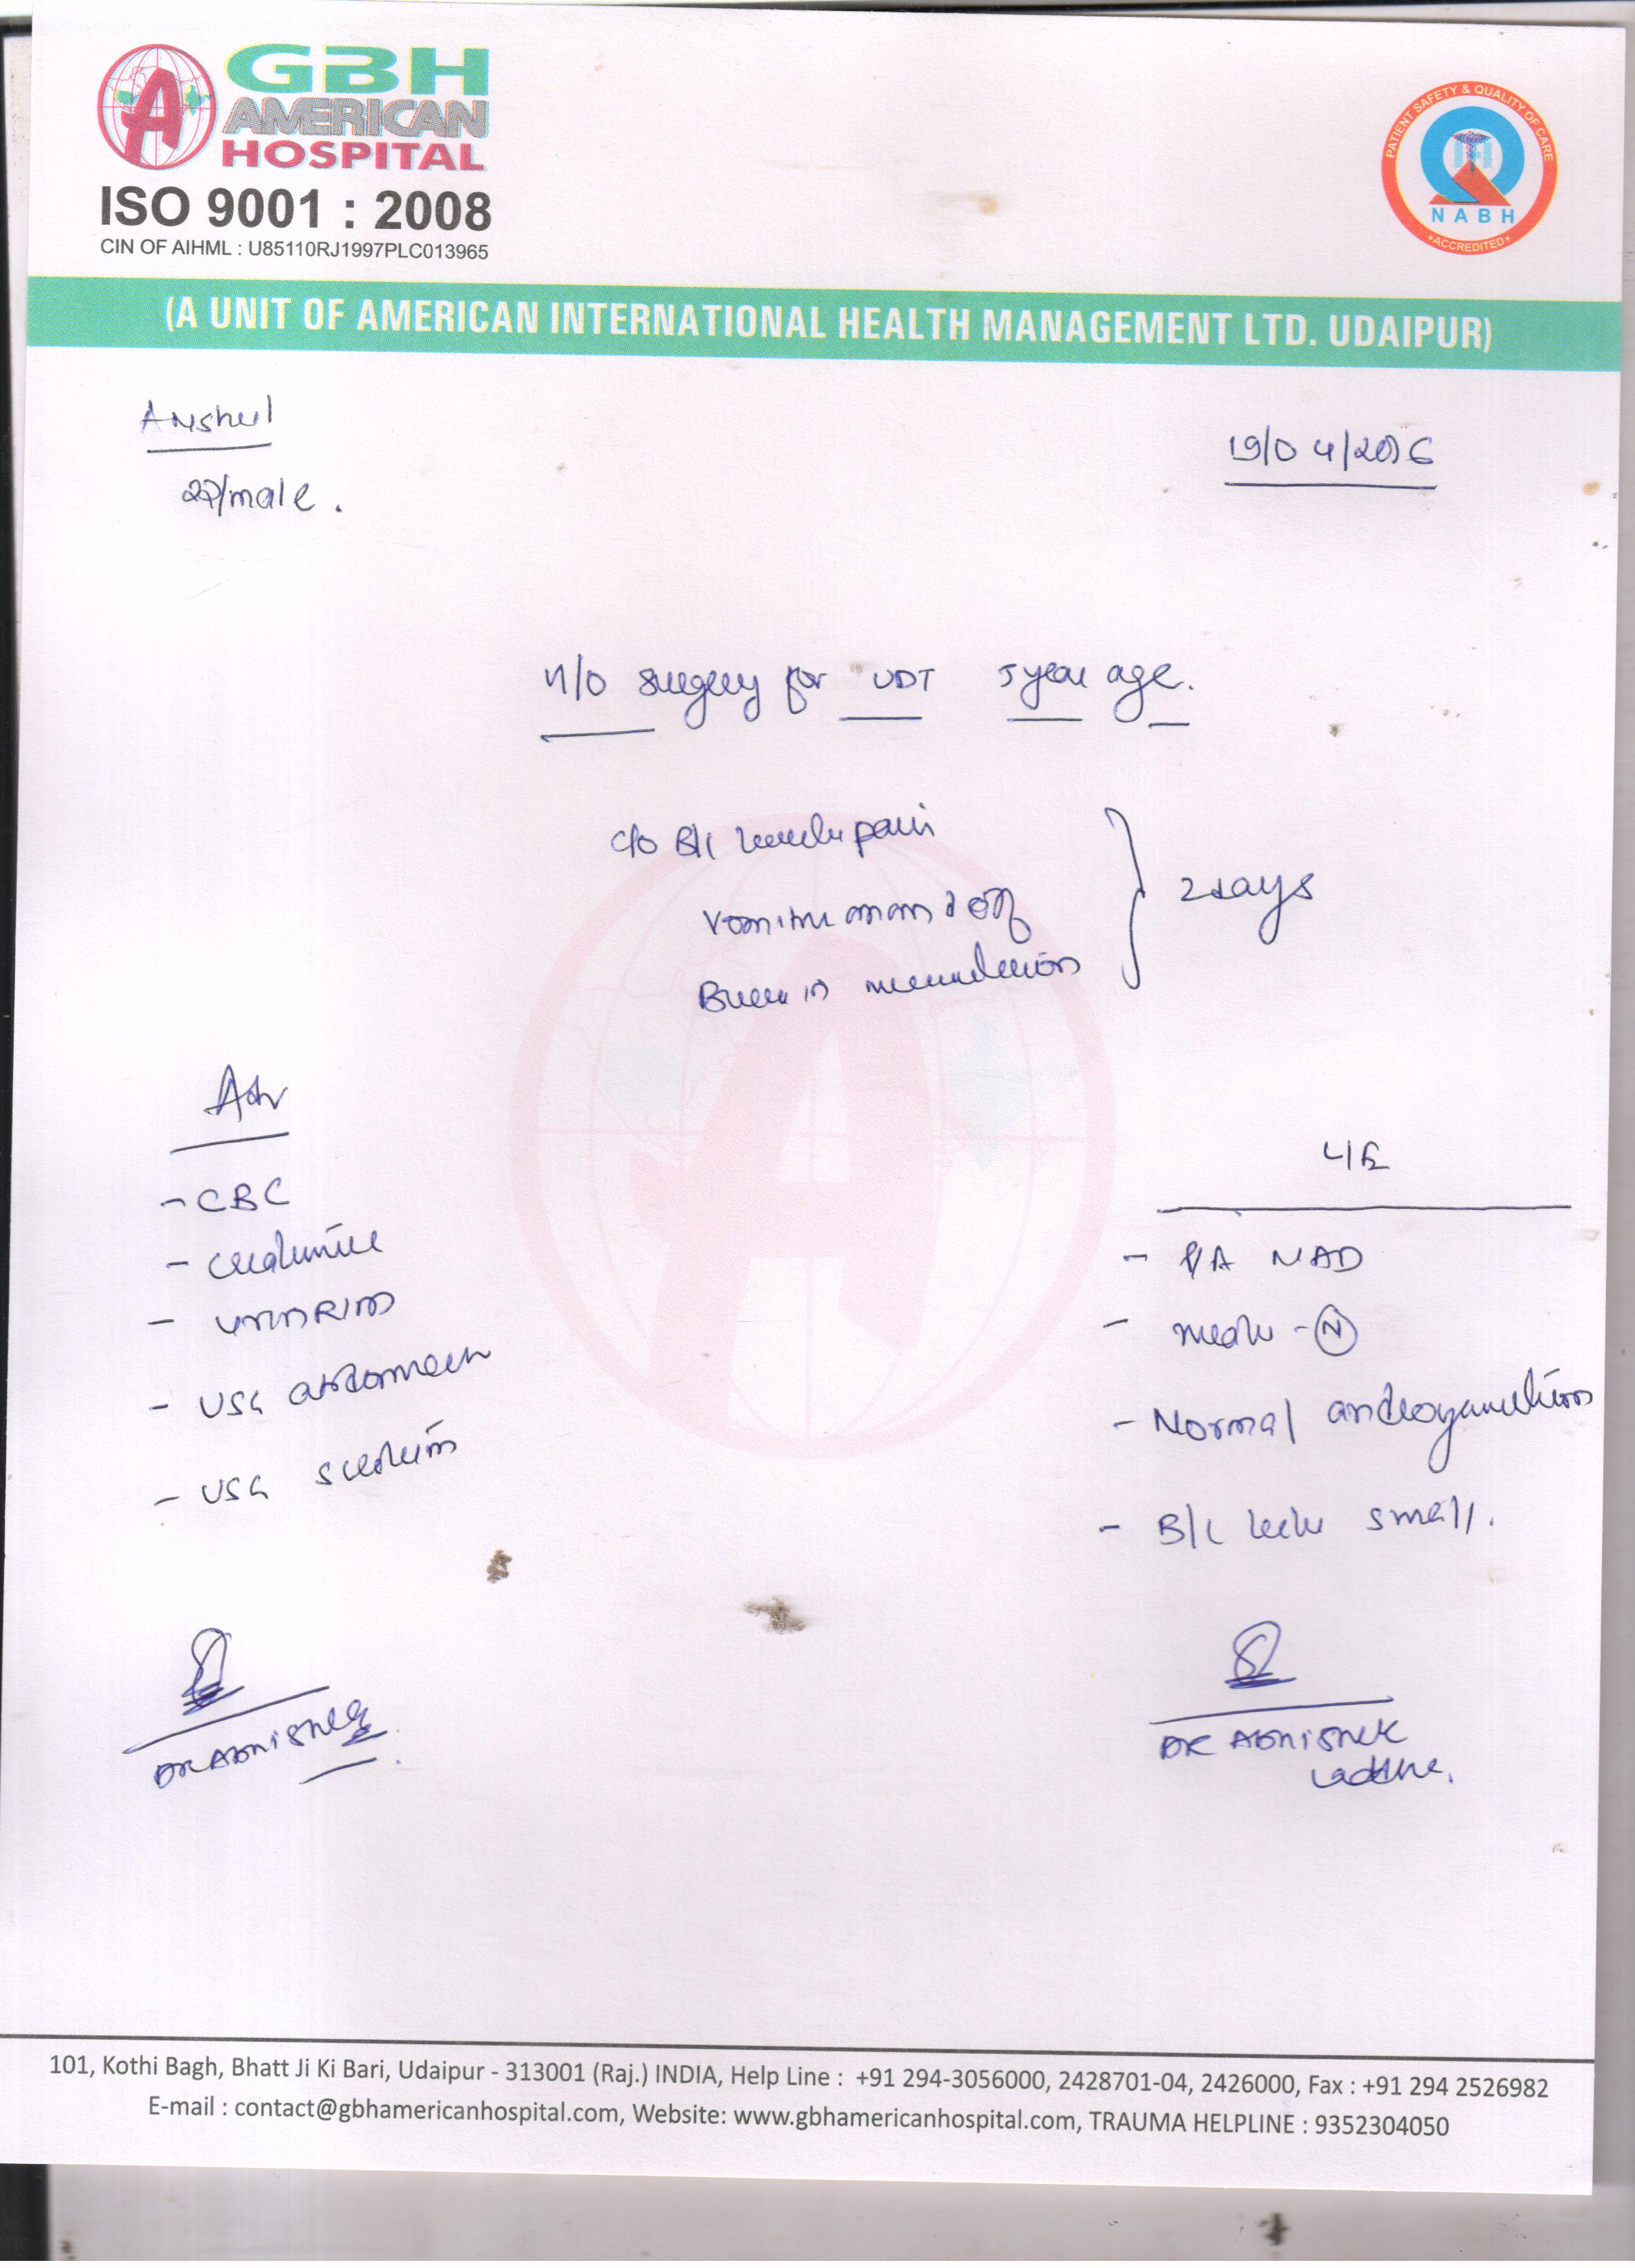 GBH
AMERICAN
HOSPITAL
ISO 9001 : 2008
CIN OF AIHML : U85110RJ1997PLC013965
PATIENT SAFETY & QUALITY OF CARE
NABH
ACCREDITED
(A UNIT OF AMERICAN INTERNATIONAL HEALTH MANAGEMENT LTD. UDAIPUR)
Anshul
19/04/2016
/male.
H/O surgery for UDT 5 year age.
c/o B/L pain
2 days
Adv
- CBC
- creatinine
- USG abdomen
- USG scrotum
L/E
- P/A NAD
- meatus - N
- Normal
- B/L testis small.
DR Abhishek
DR Abhishek
101, Kothi Bagh, Bhatt Ji Ki Bari, Udaipur - 313001 (Raj.) INDIA, Help Line : +91 294-3056000, 2428701-04, 2426000, Fax : +91 294 2526982
E-mail : contact@gbhamericanhospital.com, Website: www.gbhamericanhospital.com, TRAUMA HELPLINE : 9352304050